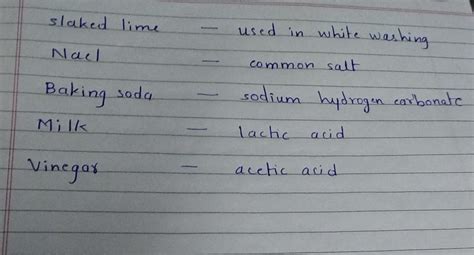 slaked lime — used in white washing
Nacl — common salt
Baking soda — sodium hydrogen carbonate
Milk — lactic acid
Vinegar — acetic acid